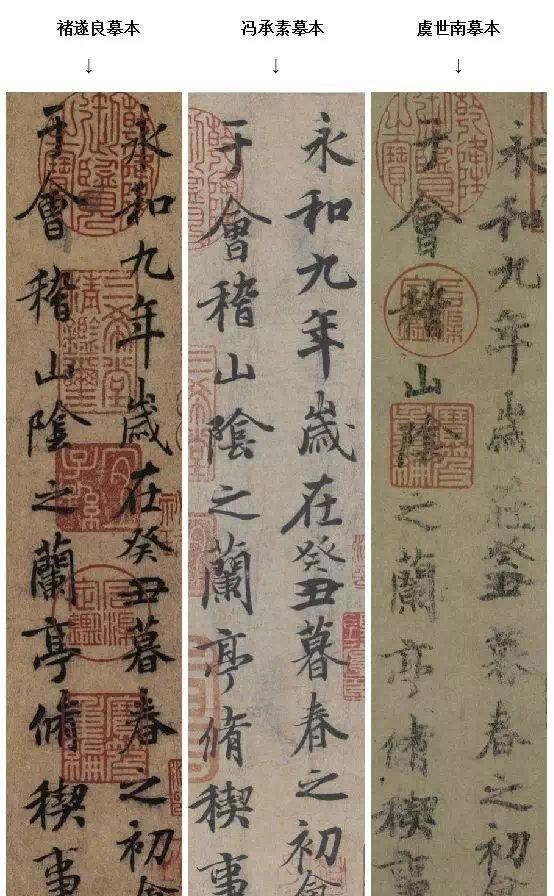 褚遂良摹本
冯承素摹本
虞世南摹本
↓
↓
↓
永和九年歲在癸丑暮春之初
于會稽山陰之蘭亭脩稧事
三希堂精鑑璽
宜子孫
永和九年歲在癸丑暮春之初
于會稽山陰之蘭亭脩稧事
永和九年歲在癸丑暮春之初
于會稽山陰之蘭亭脩稧事